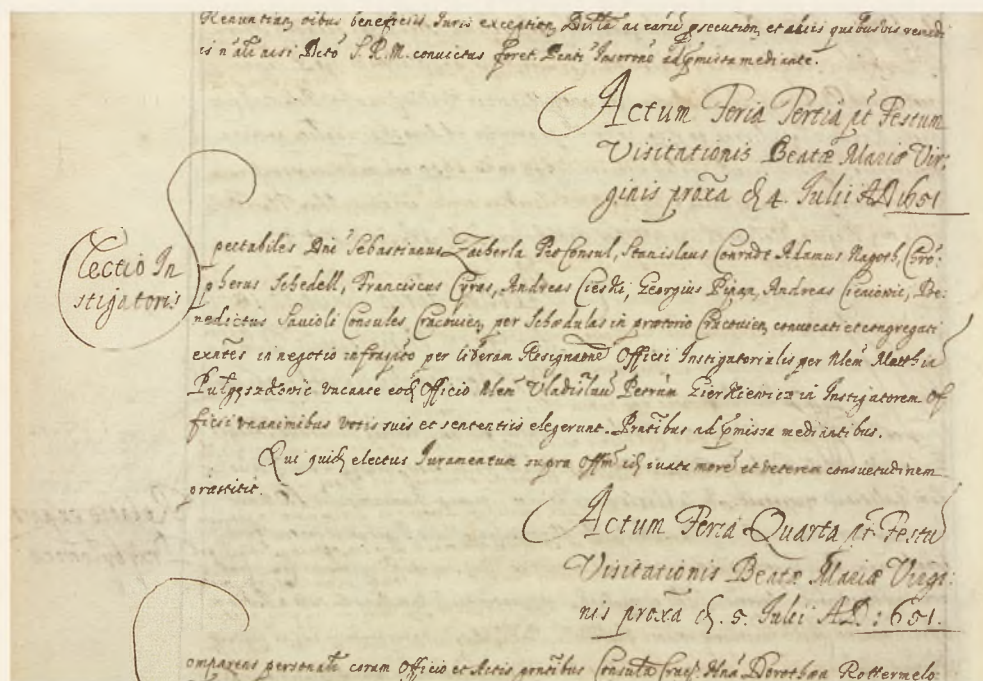 Renuntian, oibus beneficiis Juris exception, ac cariu psecution, et aliis quibusvis remedi
is nisi S. R. M. convictus foret. mediante.
Actum Feria Tertia pt Festum
Visitationis Beatæ Mariæ Vir:
ginis proxã d 4. Julii AD 1651
Electio In
stigatoris
Spectabiles Dni Sebastianus Zacherla ProConsul, Stanislaus Conradt Adamus Nagoth, Chro:
pherus Schedell, Franciscus Cyrus, Andreas Cieski, Georgius Pipan, Andreas Cieniowic, Be:
nedictus Savioli Consules Cracovien, per Schædulas in prætorio Cracovien, convocati et congregati
exñtes in negotio infrapto per liberam Resignatonẽ Officii Instigatorialis per Nlem Matthiã
vacante eod Officio Nlem Vladislau Petrum Zierkiewicz in Instigatorem Of
ficii unanimibus votis suis et sententiis elegerunt. Pñtibus ad pmissa mediantibus.
Qui quid electus Juramentum supra Offm id iuxta morẽ et veterem consuetudinem
præstitit.
Actum Feria Quarta pt Festu
Visitationis Beatæ Mariæ Virgi:
nis proxã d. 5. Julii AD: 651.
Comparens personalr coram Officio et Actis pñtibus Cons Crac: Hna Dorothæa Rottermelo